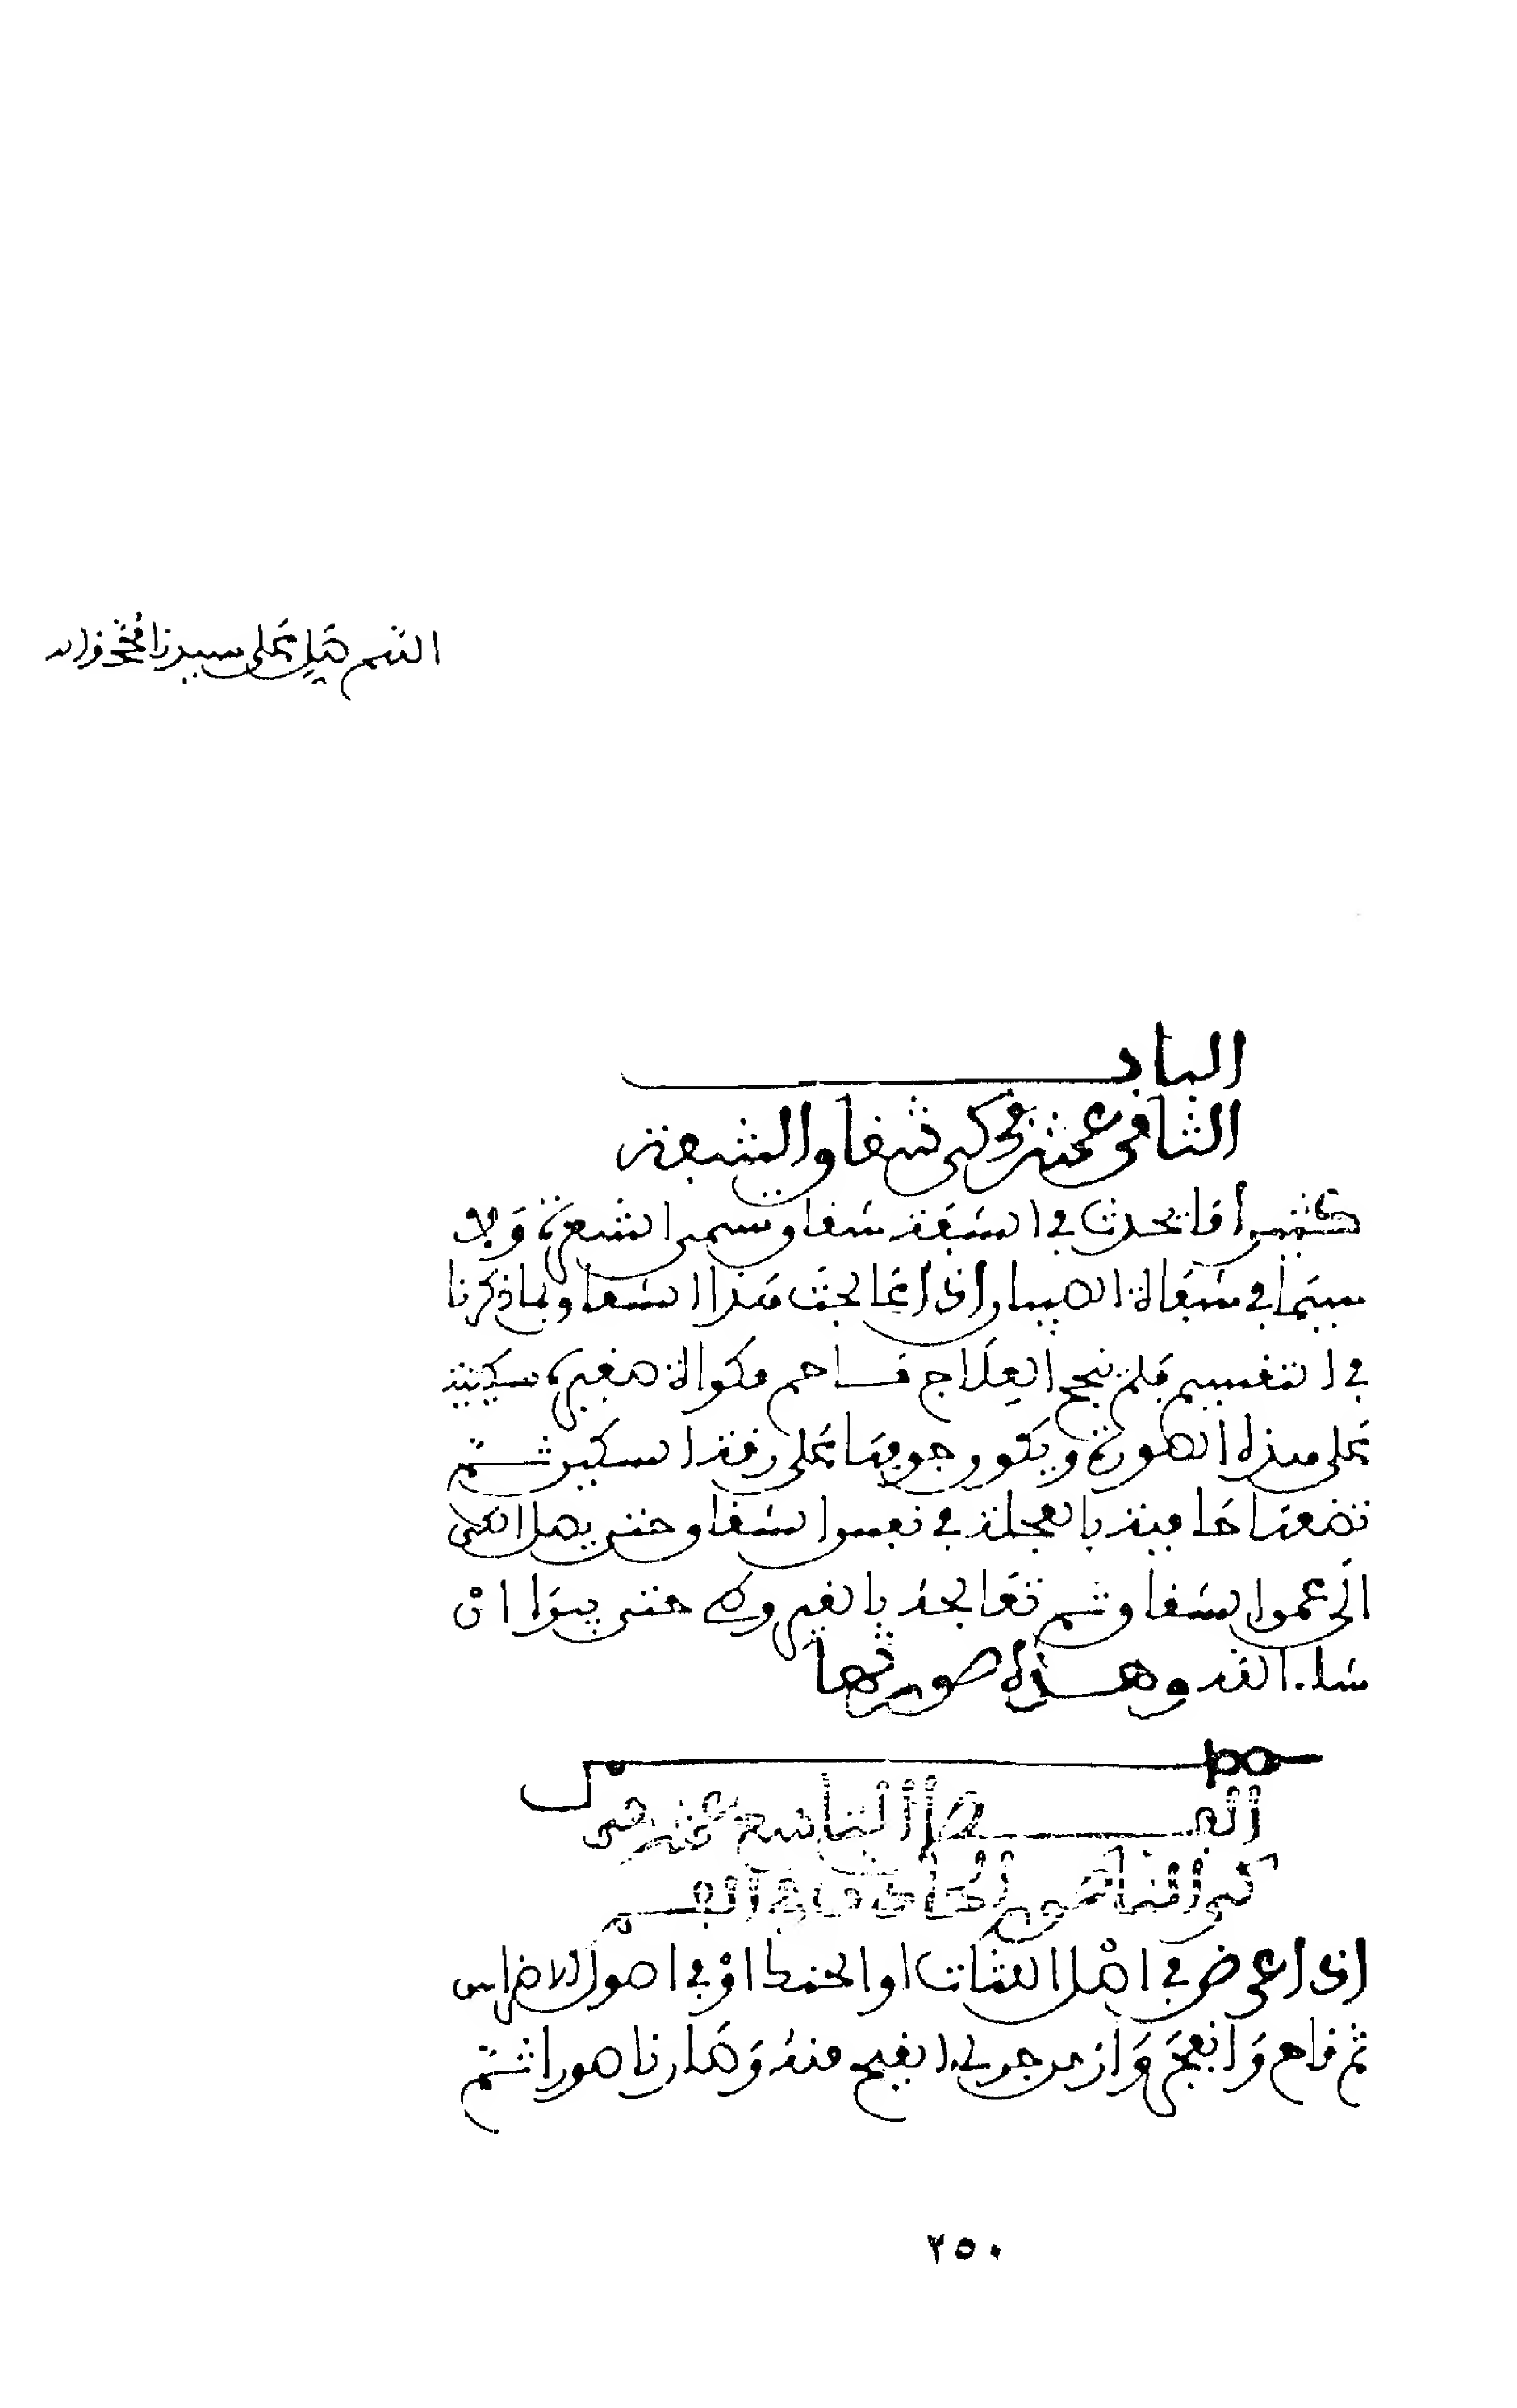 اللهم صل على سيدنا محمد وءاله
الباب
الثاني عشر في كي شقاق الشفة
كثيرا ما يحدث في الشفة شقاق يسمى الشعرة ولا
سيما في شفاه الصبيان إذا عالجت هذا الشقاق بما ذكرنا
في التقسيم فلم ينجح العلاج فاحم مكواة صغيرة سكينية
على هذه الصورة ويكون جوفها على رقة السكين ثم
تضعها حامية بالعجلة في نفس الشقاق حتى يصل الكي
الى عمق الشقاق ثم تعالجه بالقيروطي حتى يبرا ان
شاء الله وهذه صورتها
الفصل التاسع عشر في
كي الناصور الحادث في الفم
اذا عرض في اصل اللثات او الحنك او في اصول الاضراس
ثم قاح وانفجر وازمن جري القيح منه وصار ناصورا ثم
٢٥٠